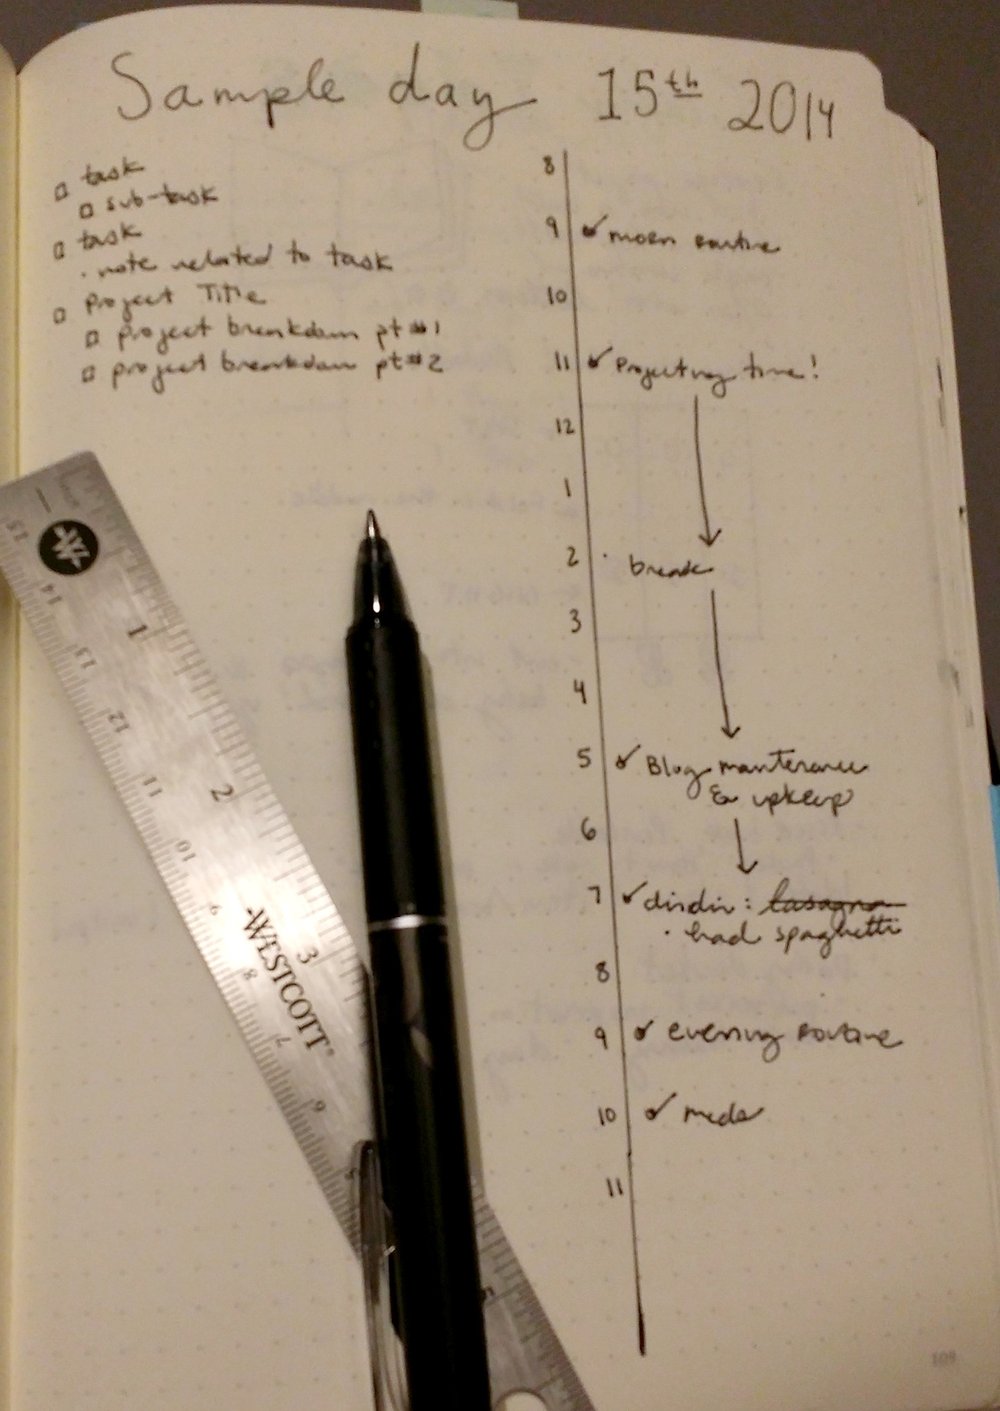 Sample day 15th 2014
□ task
□ sub-task
□ task
· note related to task
□ Project Title
□ project breakdown pt #1
□ project breakdown pt #2
8
9 ✓ morn routine
10
11 ✓ Projecting time!
12
1
2 · break
3
4
5 ✓ Blog maintenance
& upkeep
6
7 ✓ dindin: lasagna
· had spaghetti
8
9 ✓ evening routine
10 ✓ meds
11
W
1
2
3
15
14
13
12
11
10
9
8
7
6
5
WESTCOTT®
109